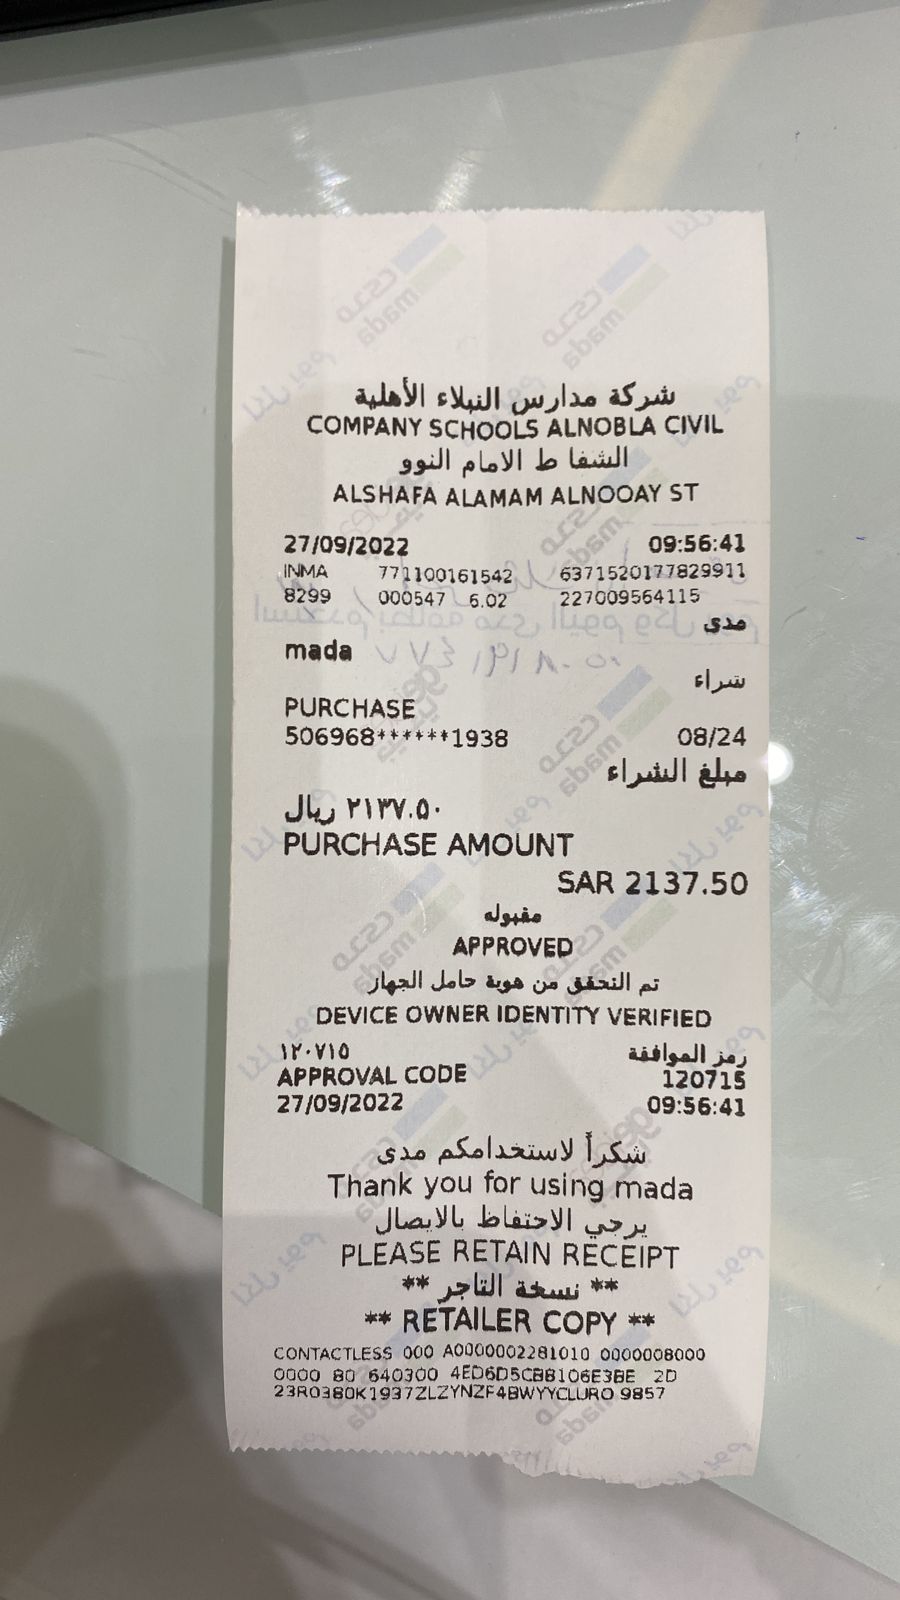 شركة مدارس النبلاء الأهلية
COMPANY SCHOOLS ALNOBLA CIVIL
الشفا ط الامام النوو
ALSHAFA ALAMAM ALNOOAY ST
27/09/2022 09:56:41
INMA 771100161542 6371520177829911
8299 000547 6.02 227009564115
مدى
mada
شراء
PURCHASE
506968******1938 08/24
مبلغ الشراء
٢١٣٧.٥٠ ريال
PURCHASE AMOUNT
SAR 2137.50
مقبوله
APPROVED
تم التحقق من هوية حامل الجهاز
DEVICE OWNER IDENTITY VERIFIED
رمز الموافقة ١٢٠٧١٥
APPROVAL CODE 120715
27/09/2022 09:56:41
شكراً لاستخدامكم مدى
Thank you for using mada
يرجي الاحتفاظ بالايصال
PLEASE RETAIN RECEIPT
** نسخة التاجر **
** RETAILER COPY **
CONTACTLESS 000 A0000002281010 0000008000
0000 80 640300 4ED6D5CBB106E3BE 2D
23R0380K1937ZLZYNZF4BWYYCLURO 9857